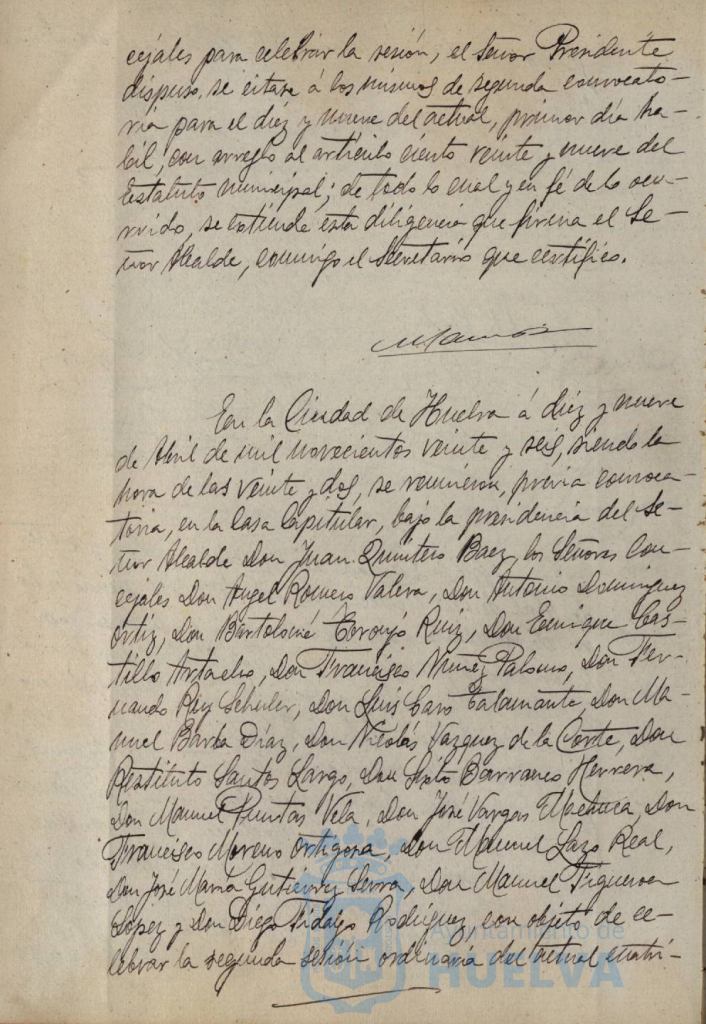 cejales para celebrar la sesión, el Señor Presidente
dispuso, se citase á los mismos de segunda convocato-
ria para el diéz y nueve del actual, primer día há-
bil, con arreglo al artículo ciento veinte y nueve del
Estatuto municipal; de todo lo cual y en fé de lo ocu-
rrido, se extiende esta diligencia que firma el Se-
ñor Alcalde, conmigo el Secretario que certifico.
En la Ciudad de Huelva á diéz y nueve
de Abril de mil novecientos veinte y seis, siendo la
hora de las veinte y dos, se reunieron, previa convoca-
toria, en la Casa Capitular, bajo la presidencia del Se-
ñor Alcalde Don Juan Quintero Baez, los Señores Con-
cejales Don Angel Romero Valera, Don Antonio Dominguez
Ortiz, Don Bartolomé Ruiz, Don Enrique Cas-
tillo Don Francisco Nuñez Palomo, Don Fer-
nando Rey Don Luis Caro Talamante, Don Ma-
nuel Barba Díaz, Don Nicolás Vazquez de la Corte, Don
Restituto Santos Largo, Don Sixto Barranco Herrera,
Don Manuel Puntas Vela, Don José Vargas Machuca, Don
Francisco Moreno Ortigosa, Don Manuel Lazo Real,
Don José María Gutiérrez Serra, Don Manuel Figueroa
López y Don Diego Fidalgo Rodríguez, con objeto de ce-
lebrar la segunda sesión ordinaria del actual cuatri-
Ayuntamiento de
HUELVA